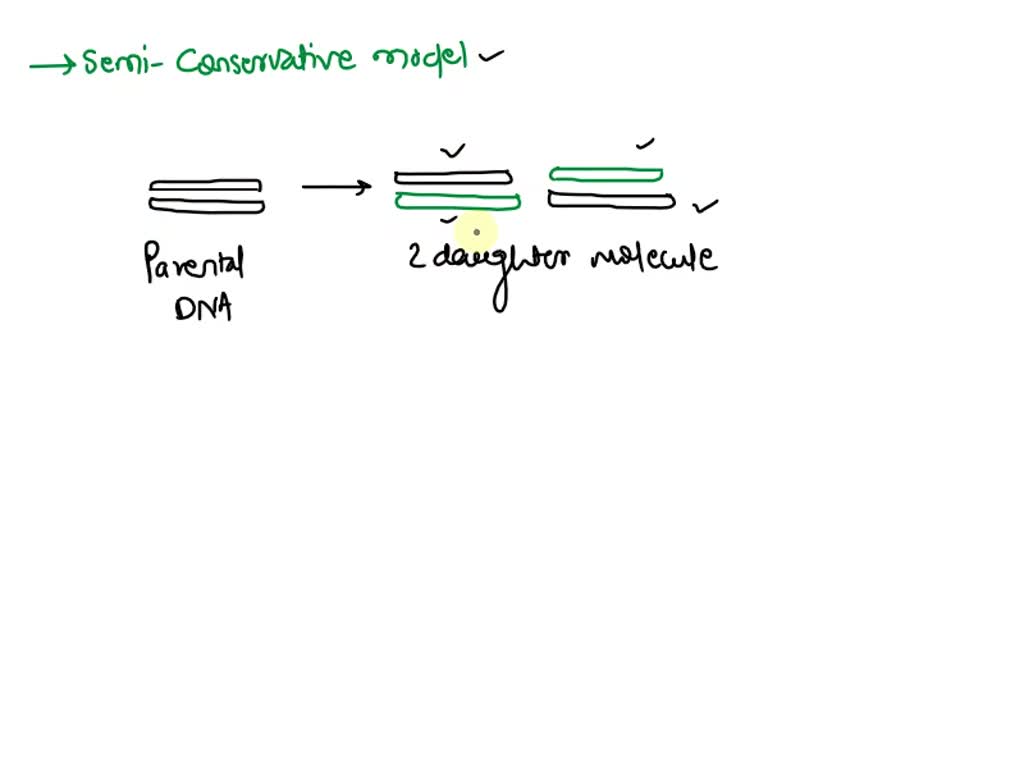 → Semi-Conservative model ✓
Parental
DNA
2 daughter molecule